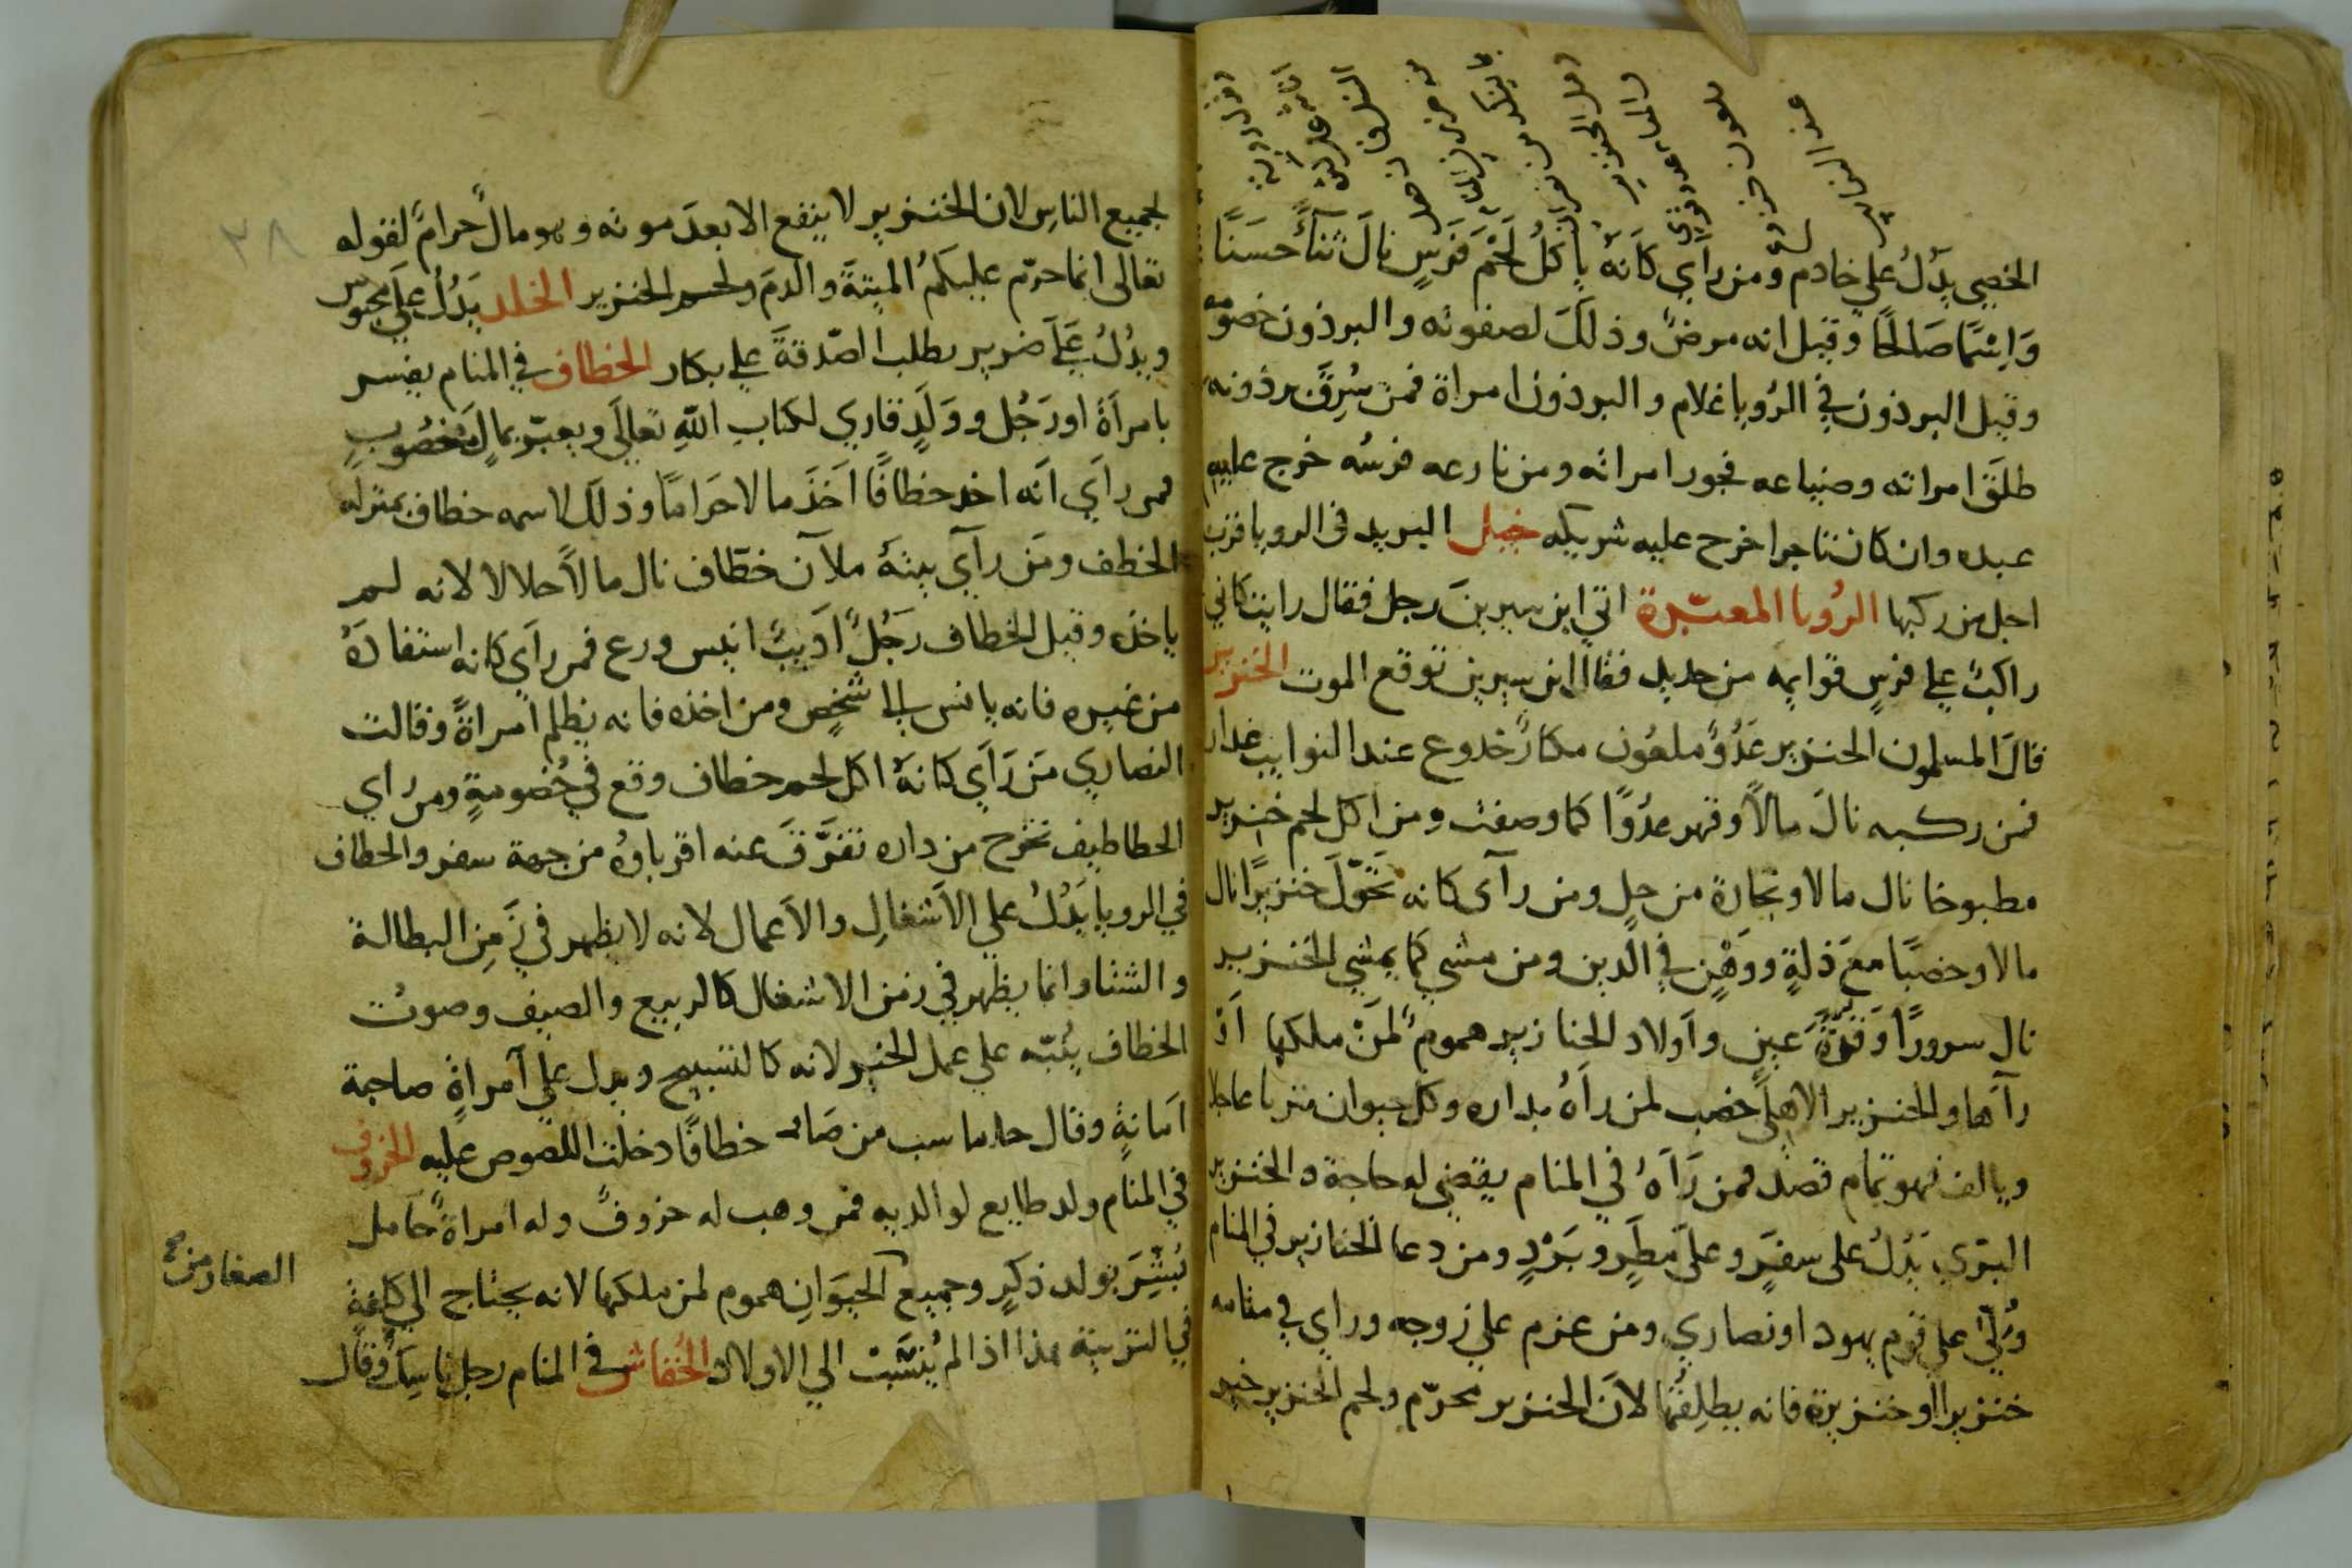 الخصي يدُلُ علي خادم ومن راَي كَاَنهُ ياكلُ لَحْمَ فَرَسٍ نالَ ثنآءً حسَنًا
وَاِسْمًا صَالحًا وقيل انه مرضٌ وذلكَ لصفوته والبرذون خصومه
وقيل البرذون في الرُويا غلام والبرذون امراة فمن سُرِقَ برذونه
طلَقَ امراته وضياعه فجور امراته ومن نازعه فرسُه خرج عليه
عبده وان كان تاجرا خرج عليه شريكه خيل البريد فى الرويا قرب
اجل من ركبها الرُويا المعبّرة اتي ابن سيرينَ رجل فقال رايت كاني
راكبٌ علي فرسٍ قوايمه من حديد فقال ابن سيرين توقع الموت الخنزير
قالَ المسلمون الخنزير عَدُوٌ ملعُون مكارٌ خدوع عند النوايب غدار
فمن ركبه نالَ مالاً وقهر عدُوًا كما وصفت ومن اكل لحم خنزير
مطبوخا نال مالا وتجارة من حلٍ ومن رآى كانه تحَوّلَ خنزيرًا نال
مالا وخصبًا معَ ذلةٍ ووَهْنٍ في الدين ومن مشي كما يمشي الخنزير
نال سرورًا وَقرّةَ عينٍ وآولاد الخنازير همومٌ لمَنْ ملكها اَوْ
رآها والخنزير الاهلي خصب لمن راَهُ بداره وكل حيوان يتربا عاجلا
ويالف فهو تمام قصد فمن رَاَهُ في المنام يقضي له حاجة والخنزير
البرّي يَدُلُ على سفَرٍ وعلى مطَرٍ وبَرْدٍ ومن دعا الخنازير في المنام
وُلِّيَ علي قوم يهود او نصاري ومن عزم علي زوجه وراي في منامه
خنزيرا او خنزيرة فانه يطلِقُها لانَ الخنزير محرّم ولحم الخنزير خير
لجميع الناسِ لان الخنزير لا ينفع الا بعدَ موته وهو مالٌ حرامٌ لقوله
تعالى انما حرّم عليكمُ الميتةَ والدمَ ولحم الخنزير الخلد يَدُلُ علَي محبوس
ويدُلُ عَلَي ضرير يطلب الصّدقةَ علي بكار الخطاف في المنام يفسر
بامراَة او رَجُل ووَلَدٍ قاري لكتاب اللهِ تعالَي ويعبّر بمالٍ مَغصُوبٍ
فمن راَي اَنه اخد خطافًا اَخَذَ مالا حَرَامًا وذلكَ لاسمه خطاف بمنزله
الخطف ومَن رآَي بيتهُ ملآن خطّاف نال مالاً حلالا لانه لم
ياخذه وقيل الخطاف رَجُلٌ اَديبٌ انيس ورع فمن راَي كانه استفادَهُ
من غيره فانه يانس الي شخصٍ ومن اخذه فانه يظلم امراةً وقالت
النصاري مَن رَاَي كانهُ اكل لحم خطاف وقع في خُصومةٍ ومن راي
الخطاطيف تخرج من داره تفَرَّقَ عنه اقرباوهُ من جهة سفر والخطاف
في الرويا يَدُلُ علي الاَشغالِ والاَعمال لانه لا يظهر في زَمِن البطالة
والشتا وانما يظهر في زمن الاشغال كالربيع والصيف وصوتُ
الخطاف يُنبّه علي عمل الخير لانه كالتسبيح ويدل علي آمراةٍ صاحبة
اَمانةٍ وقال جاماسب من صاد خطافًا دخلت اللصوص عليه الخروف
في المنام ولد طايع لوالديه فمن وهب له خروفٌ وله امراةٌ حامل
بُشِّرَ بولد ذكرٍ وجميع الحيَوَانِ هموم لمن ملكها لانه يحتاج الي كلفةٍ
الصغار من
في التربية هذا اذا لم يُنسَبْ الي الاولاد الخُفاش في المنام رجل ناسِكٌ وقال
٣٨